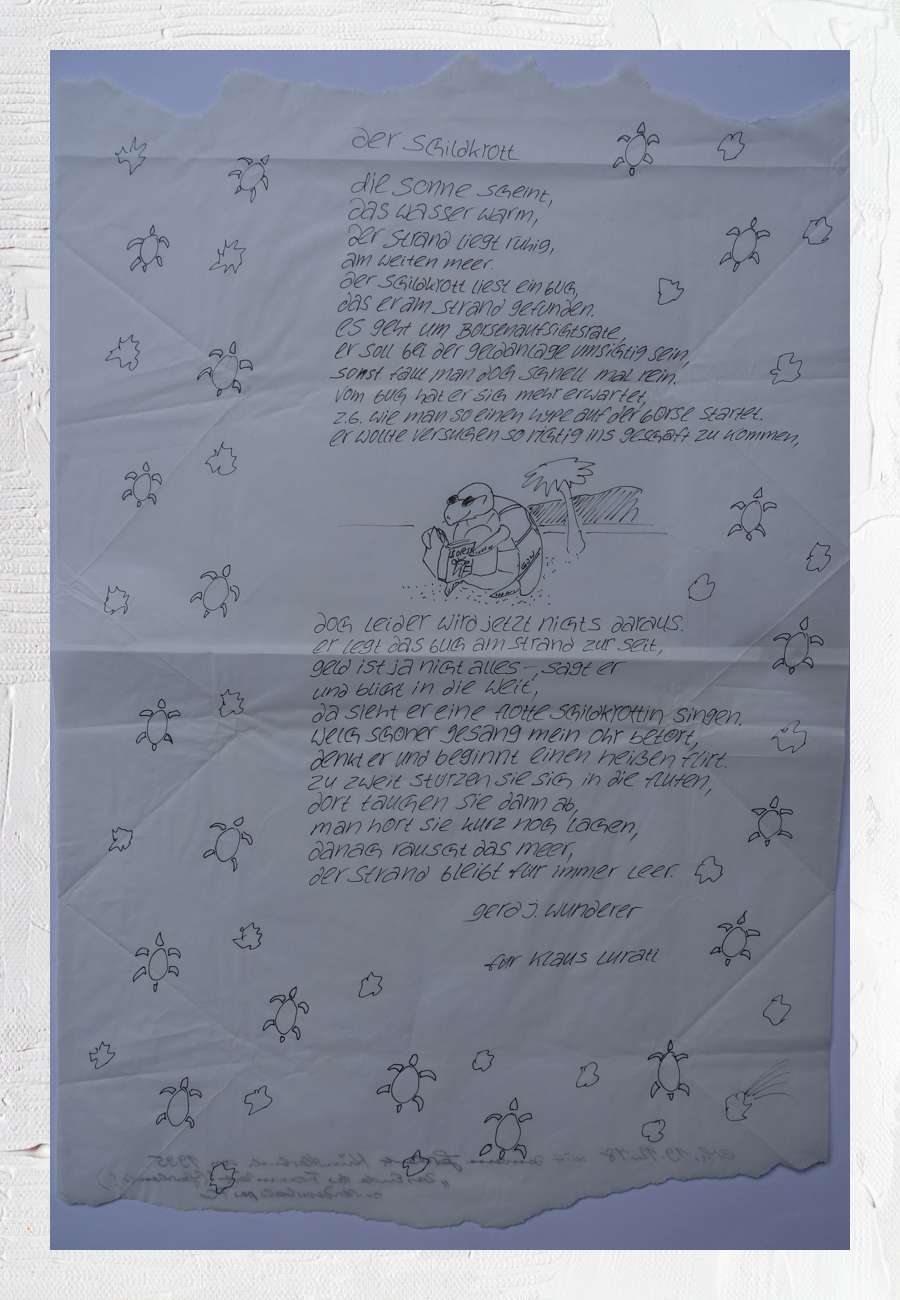 der Schildkrott
die sonne scheint,
das wasser warm,
der strand liegt ruhig,
am weiten meer.
der schildkrott liest ein buch,
das er am strand gefunden.
es geht um Börsenaufsichtsräte,
er soll bei der geldanlage umsichtig sein,
sonst fällt man doch schnell mal rein.
vom buch hat er sich mehr erwartet,
z.b. wie man so einen hype auf der börse startet.
er wollte versuchen so richtig ins geschäft zu kommen,
doch leider wird jetzt nichts daraus.
er legt das buch am strand zur seit,
geld ist ja nicht alles -, sagt er
und blickt in die weit,
da sieht er eine flotte schildkröttin singen.
welch schöner gesang mein ohr betört,
denkt er und beginnt einen heißen flirt.
zu zweit stürzen sie sich in die fluten,
dort tauchen sie dann ab,
man hört sie kurz noch lachen,
danach rauscht das meer,
der strand bleibt für immer leer.
gerd j. wunderer
für klaus lurati